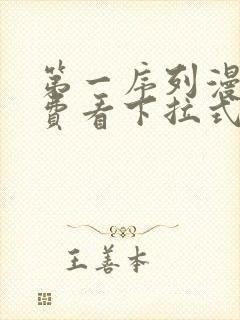 第一序列漫
费看下拉式
王善本